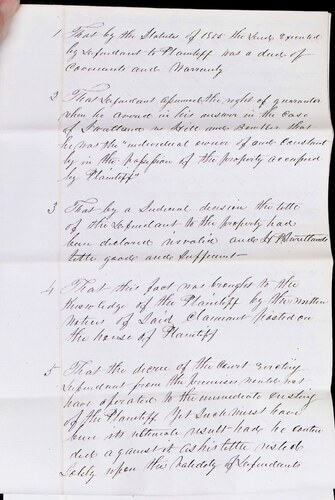 1 That by the Statutes of 1855 the Deed Executed
by Defendant to Plaintiff was a deed of
Covenants and Warranty
2 That Defendant assumed the right of guarantor
when he averred in his answer in the case
of Swetland vs Hill and Bowller that
he was the "individual owner of and constant
by in the possession of the property occupied
by Plaintiff"
3 That by a Judicial decision the title
of the Defendant to the property had
been declared invalid and Swetlands
title good and Sufficient
4 That this fact was brought to the
knowledge of the Plaintiff by the written
notice of Said Claimant posted on
the house of Plaintiff
5 That the decree of the Court Evicting
Defendant from the premises would not
have operated to the immediate Evicting
of the Plaintiff Yet Such must have
been its ultimate result had he conten
ded against it as his title rested
Solely upon the Validity of Defendants